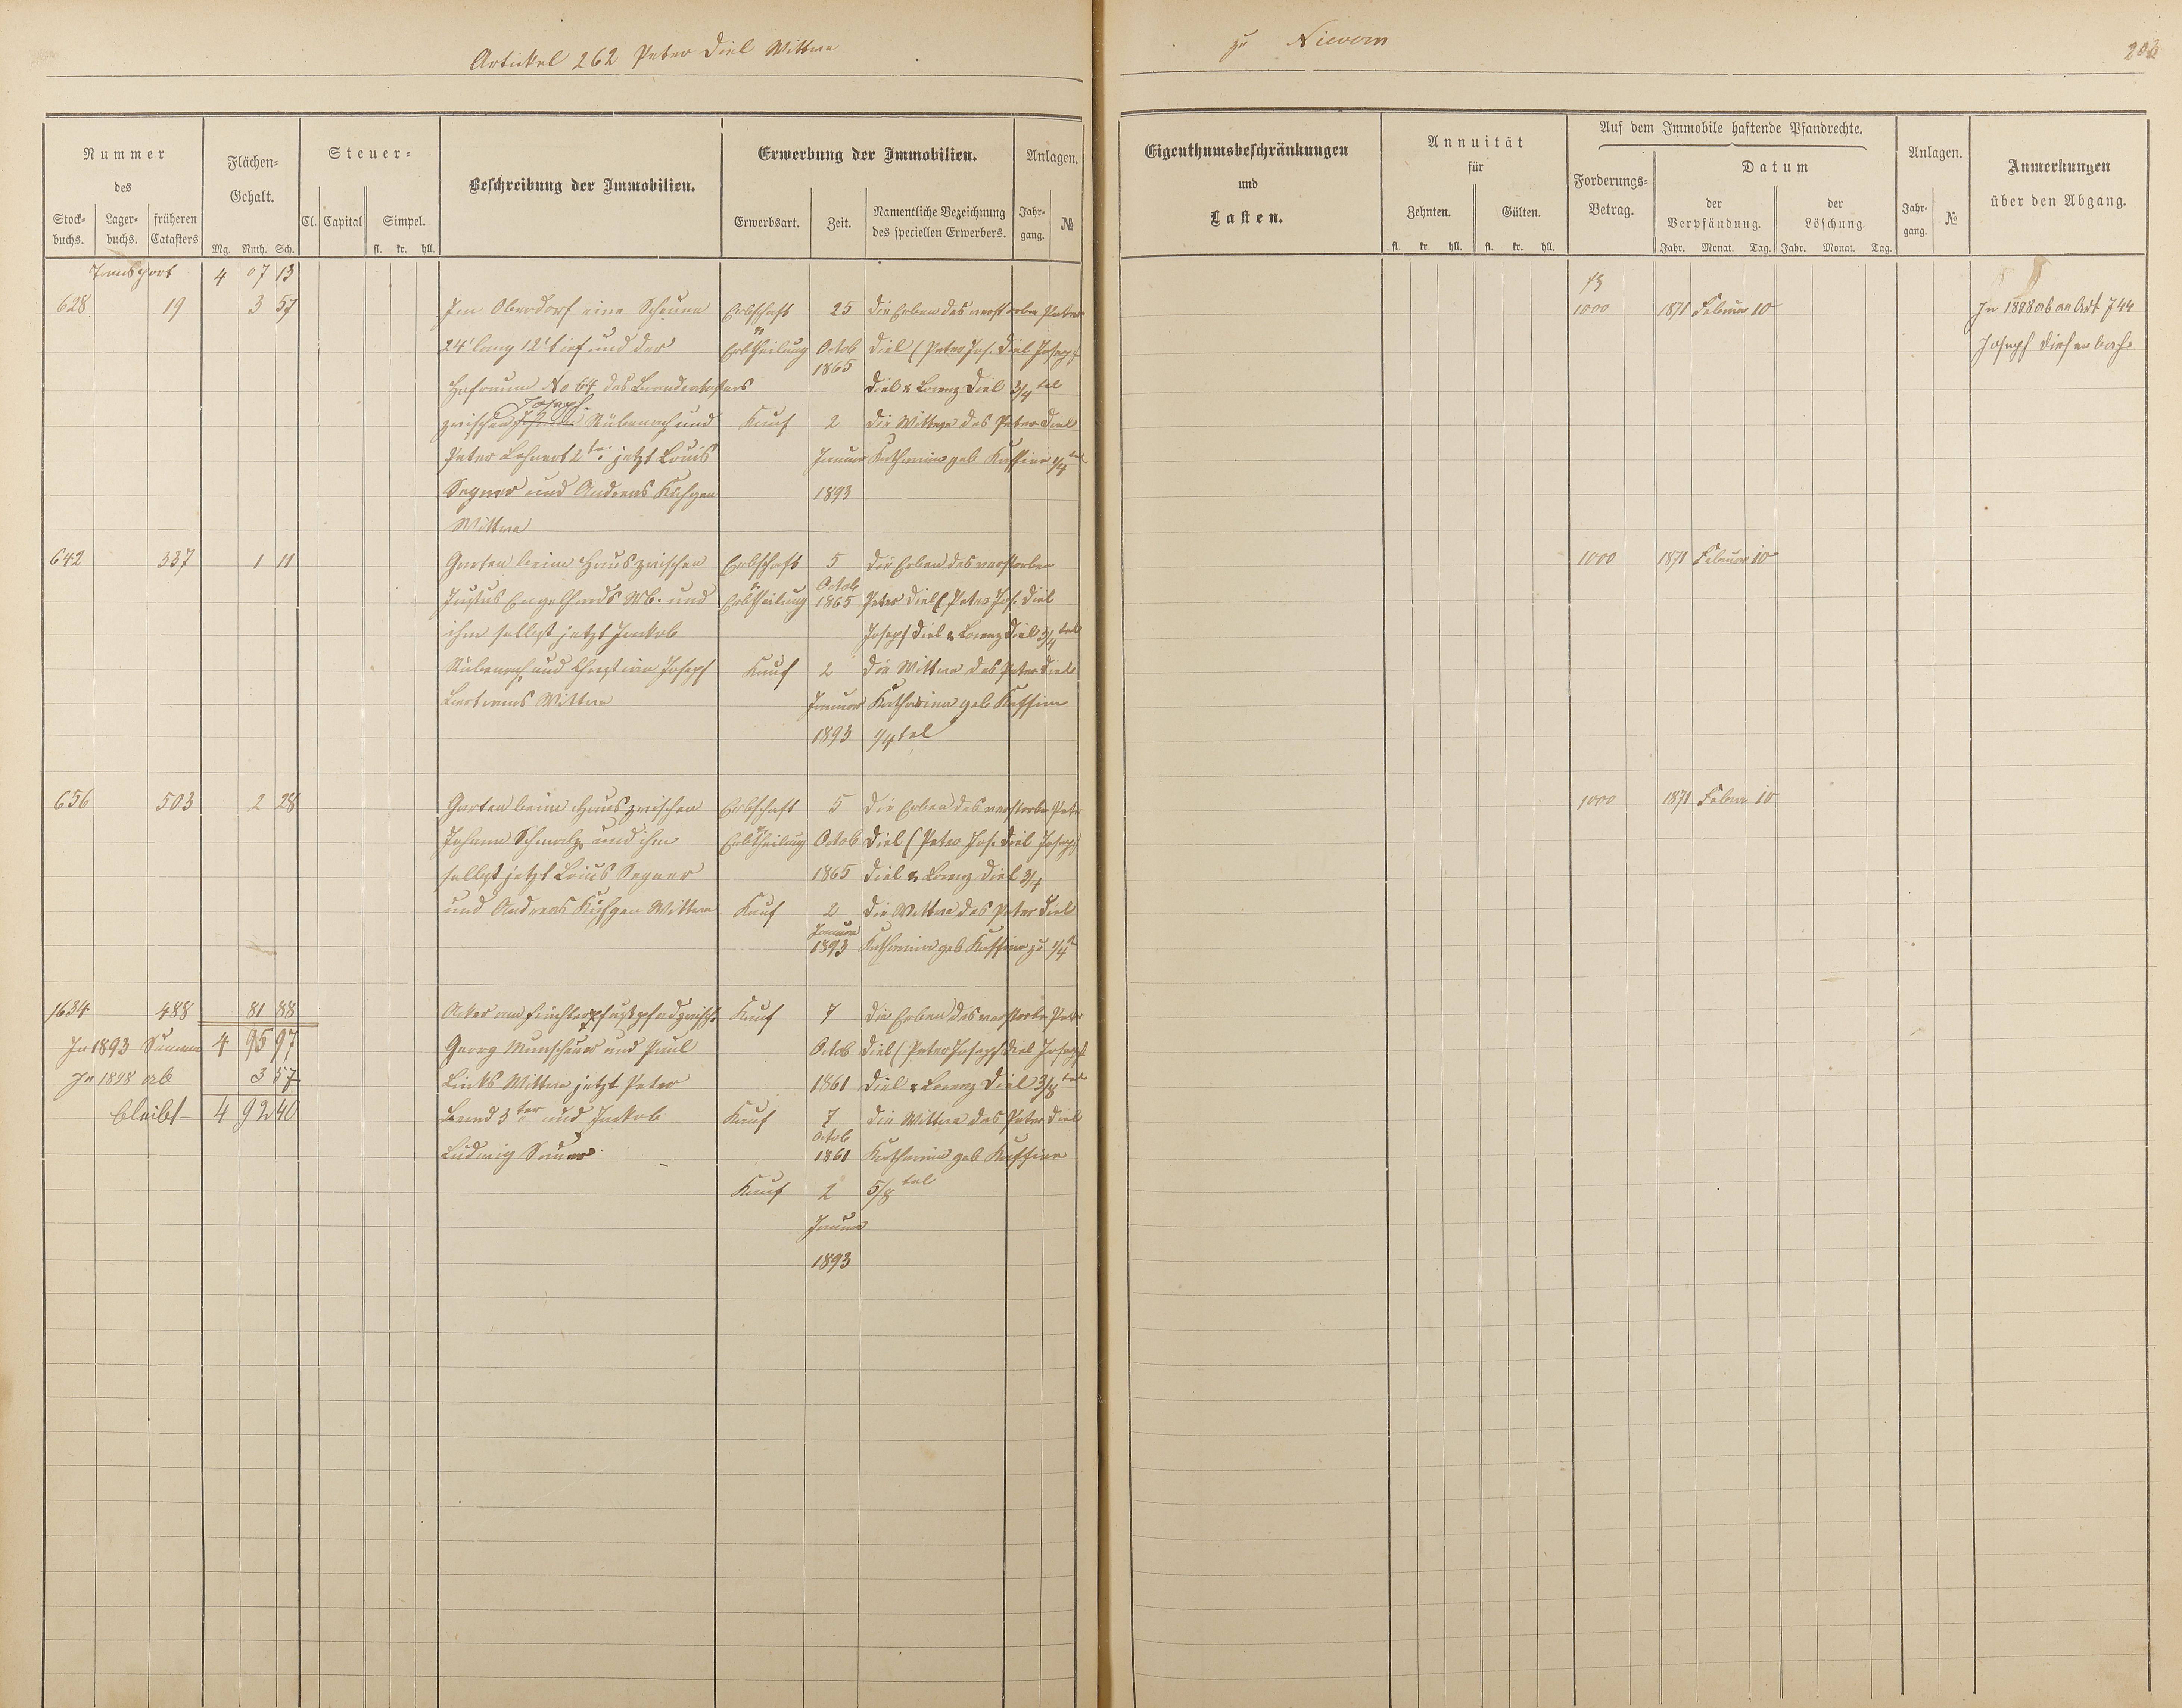 Artickel 262 Peter Diel Wittwe
zu Nievern
Nummer
des
Stockbuchs. Lagerbuchs. früheren Catasters
Flächen-Gehalt.
Mg. Ruth. Sch.
Steuer-
Cl. Capital Simpel.
fl. kr. hll.
Beschreibung der Immobilien.
Erwerbung der Immobilien.
Erwerbsart. Zeit. Namentliche Bezeichnung des speciellen Erwerbers.
Anlagen.
Jahrgang. №
Eigenthumsbeschränkungen
und
Lasten.
Annuität
für
Zehnten. Gülten.
fl. kr. hll. fl. kr. hll.
Auf dem Immobile haftende Pfandrechte.
Forderungs-Betrag.
Datum
der Verpfändung. der Löschung.
Jahr. Monat. Tag. Jahr. Monat. Tag.
Anlagen.
Jahrgang. №
Anmerkungen
über den Abgang.
Transport 4 07 13
628 19 3 57 Im Oberdorf eine Scheuer Erbschaft 25 die Erben des verstorben Peter 1000 1871 Februar 10 In 1898 ab an Art 744
24' lang 12' tief und der Erbtheilung Octob Diel (Peter Jos. Diel Joseph Joseph Diefenbach
1865
Hofraum No 64 des Brandcatasters Diel & Lorenz Diel 3/4 tel
Joseph
zwischen Rübenach und Kauf 2 die Wittwe des Peter Diel
Peter Lehnert 2ter jetzt Louis Januar Katharina geb 1/4 tel
Segner und Andreas 1893
Wittwe
642 337 1 11 Garten beim Haus zwischen Erbschaft 5 die Erben des verstorben 1000 1871 Februar 10
Justus Engelhards Wb. und Erbtheilung Octob 1865 Peter Diel (Peter Jos. Diel
ihm selbst jetzt Jackob Joseph Diel & Lorenz Diel 3/4 tel
Rübenach und Joseph Kauf 2 die Wittwe des Peter Diel
Wittwe Januar Katharina geb
1893 1/4 tel
656 503 2 28 Garten beim Haus zwischen Erbschaft 5 die Erben des verstorben Peter 1000 1871 Februar 10
Johann Schmalz und ihm Erbtheilung Octob Diel (Peter Jos. Diel Joseph
selbst jetzt Louis Segner 1865 Diel & Lorenz Diel 3/4
und Andreas Wittwe Kauf 2 die Wittwe des Peter Diel
Januar
1893 Katharina geb zu 1/4
1634 488 81 88 Acker am Kauf 7 die Erben des verstorben Peter
In 1893 Summe 4 95 97 Georg Munschauer und Paul Octob Diel (Peter Joseph Diel Joseph
In 1898 ab 3 57 Links Wittwe jetzt Peter 1861 Diel & Lorenz Diel 3/8 tel
bleibt 4 92 40 3ter und Jackob Kauf 7 die Wittwe des Peter Diel
Octob
Ludwig Sauer 1861 Katharina geb
Kauf 2 5/8 tel
Januar
1893